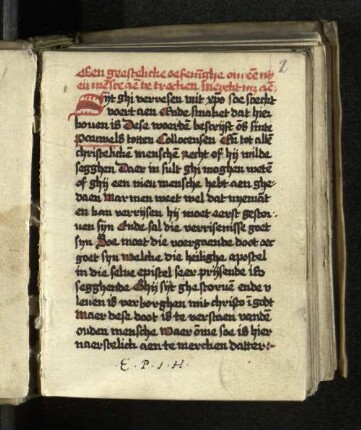 2
Een geestelicke oefeninghe om eē nye
eu mēsce aē te trecken
Syt ghi verresen mit xpo soe soect
voert aen Ende smaket dat hier
bouen is Dese woerden bescrijft ōs sinte
pauwels totten Collocensen Eñ tot allē
christelickē menschē Recht of hij wilde
segghen Daer in sult ghi moghen wetē
of ghij een nieu mensche hebt aen ghe
daen Mar men weet wel dat nyemāt
en kan verrijsen hij moet eerst gestor
uen sijn Ende sal die verrisenisse goet
sijn Soe moet die voergaende doot oec
goet sijn Welcke die heilighe apostel
in die selue epistel seer prijsende is
segghende Ghij sijt ghestoruē ende v
leuen is verborghen mit christo ī godt
Maer dese doot is te verstaen vandē
ouden mensche Waer ōme soe is hier
naerstelick aen te mercken datter
E . P . I . H .